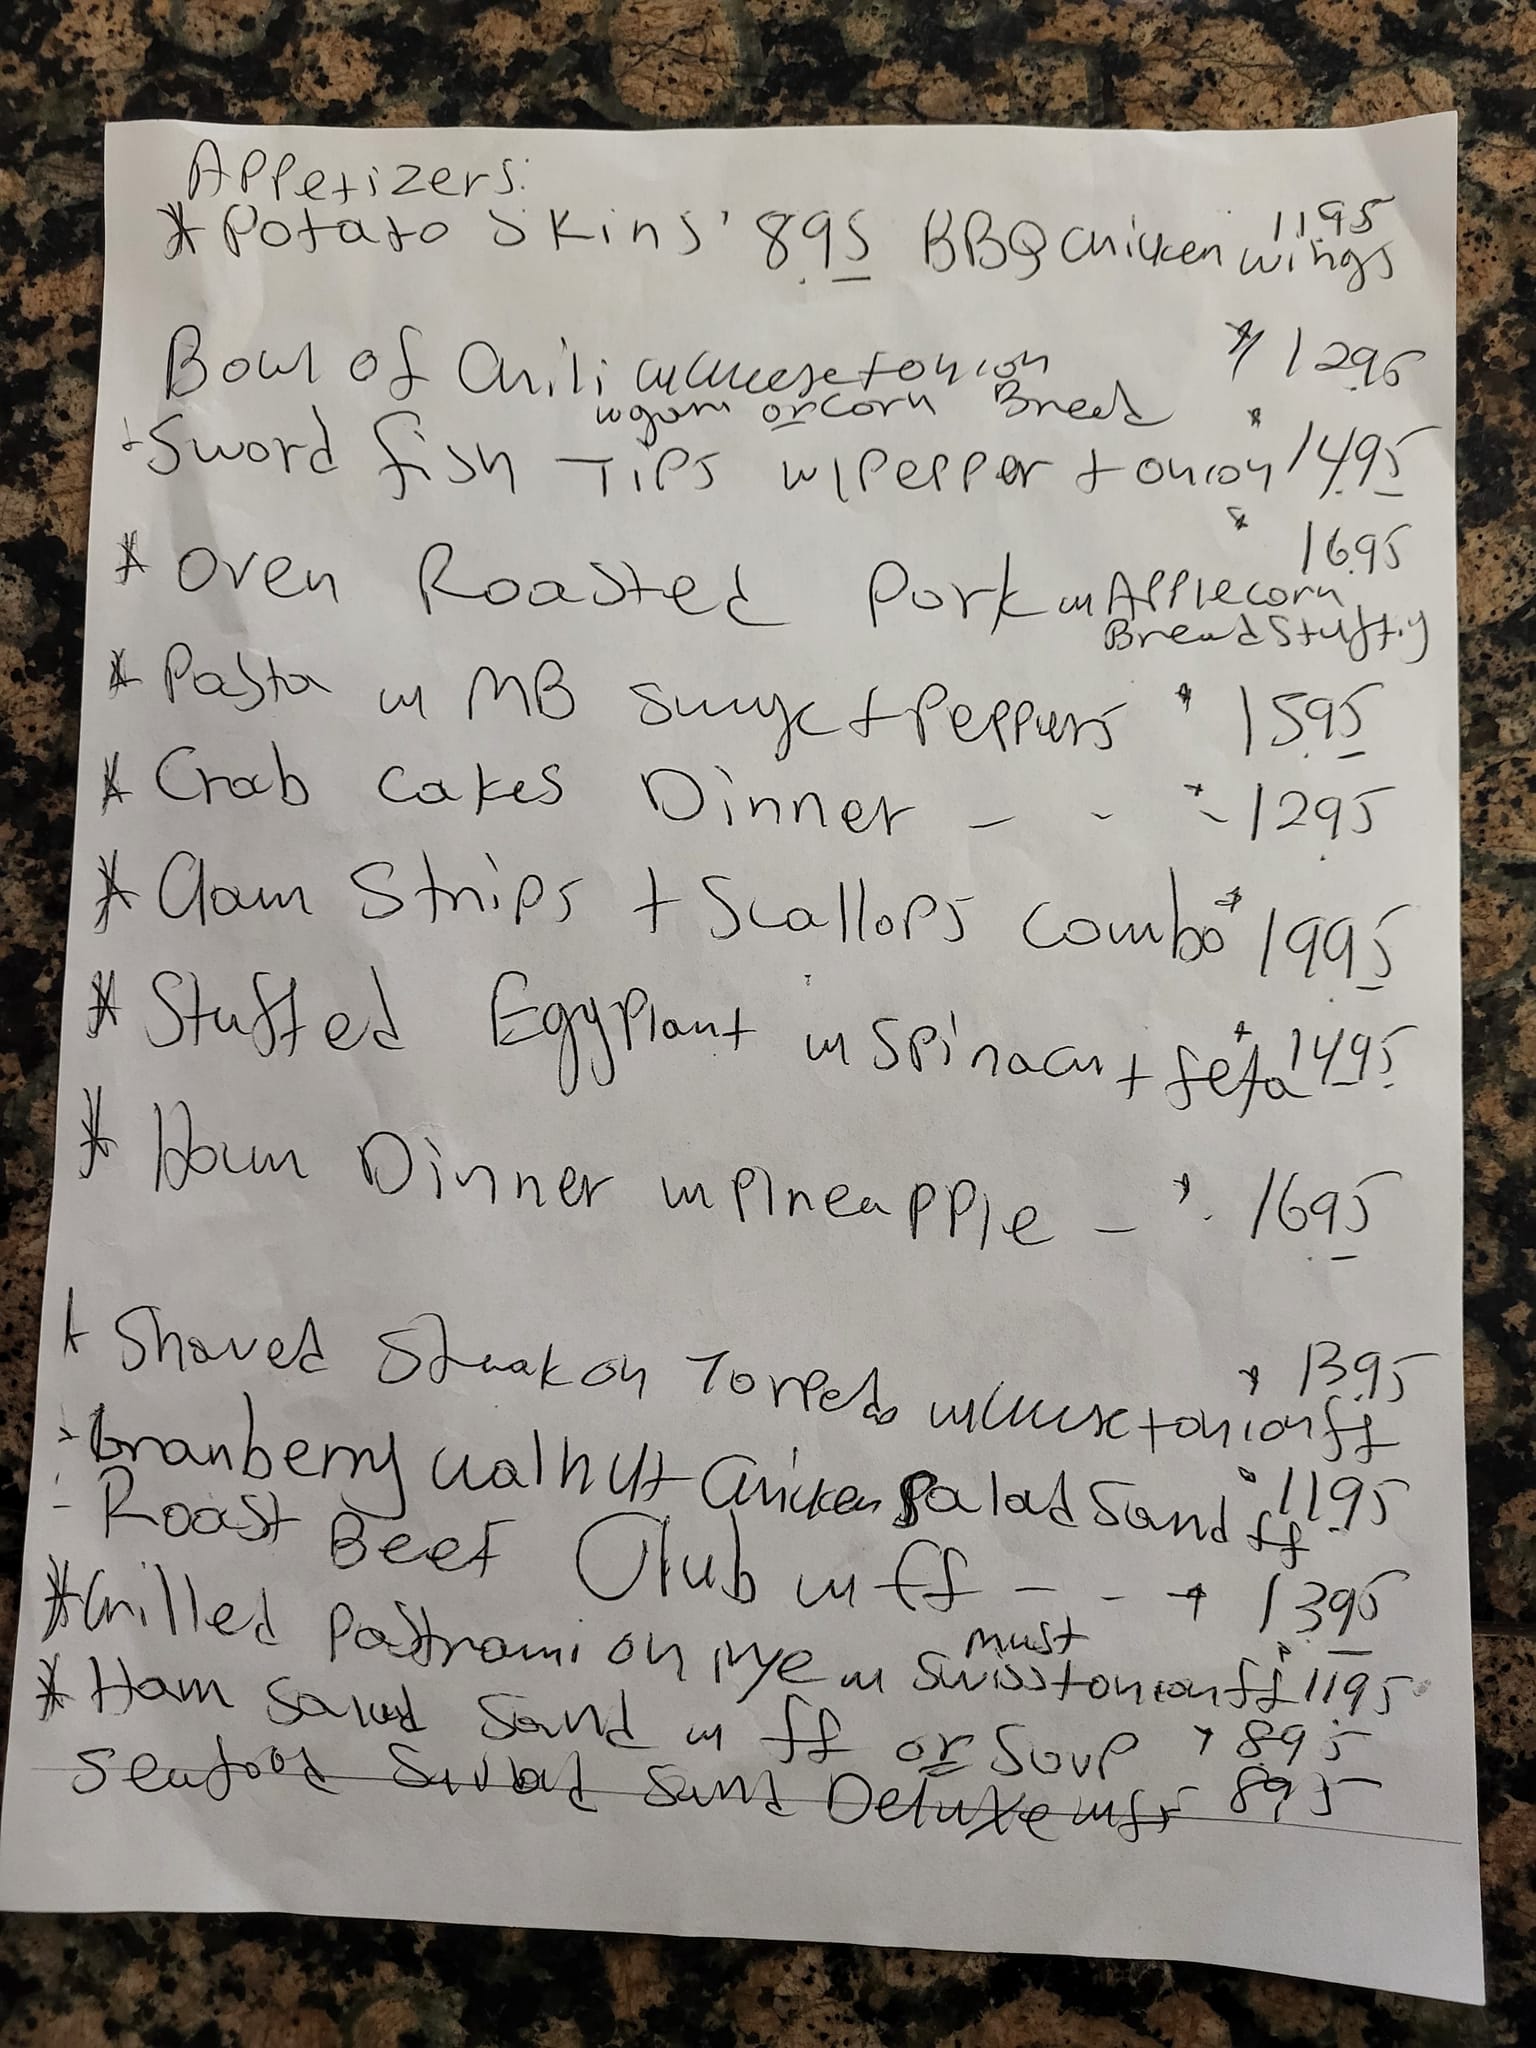 Appetizers:
* Potato Skins 8.95 BBQ Chicken wings 11.95
Bowl of Chili w cheese + onion * 12.95
or corn Bread
Sword fish Tips w/ Pepper + onion * 14.95
* Oven Roasted Pork w Apple corn * 16.95
Bread Stuffing
* Pasta w MB + Peppers * 15.95
* Crab Cakes Dinner - - * - 12.95
* Clam Strips + Scallops Combo * 19.95
* Stuffed Eggplant w spinach + feta * 14.95
* Ham Dinner w Pineapple - * 16.95
* Shaved Steak on Torpedo w cheese + onion ff * 13.95
- Cranberry walnut Chicken Salad Sand ff * 11.95
- Roast Beef Club w ff - - * 13.95
* Grilled Pastrami on rye w Swiss must + onion ff * 11.95
* Ham Salad Sand w ff or Soup * 8.95
Seafood Salad Sand Deluxe w ff 8.95